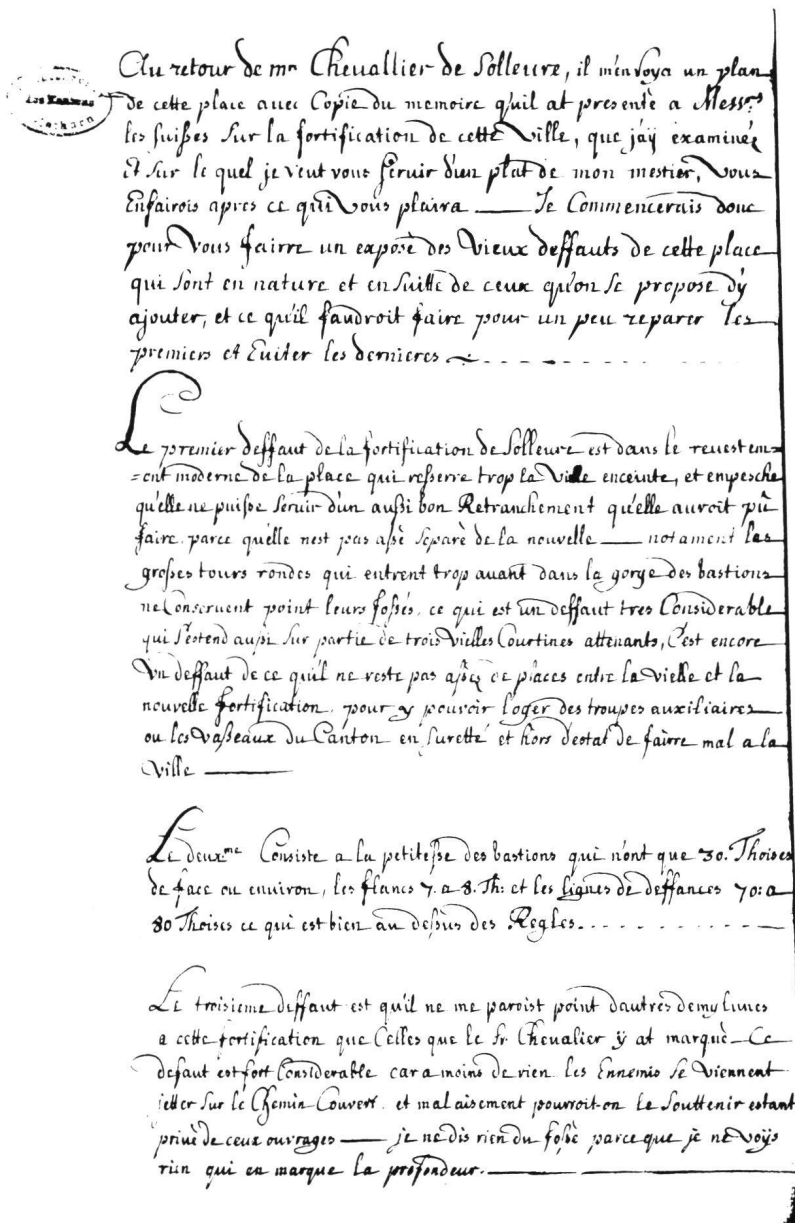 Au retour de mr Chevallier de Solleure, il m'envoya un plan
de cette place avec Copie du memoire qu'il at presentè a Messrs
les suisses sur la fortification de cette Ville, que j'aÿ examinéè
Et sur le quel je veut vous servir d'un plat de mon mestier, Vous
En fairois apres ce qui Vous plaira — Je Commencerais donc
pour Vous fairre un exposè des Vieux deffauts de cette place
qui sont en nature et en suitte de ceux qu'on se propose d'ÿ
ajouter, et ce qu'il faudroit faire pour un peu reparer les
premiers et Eviter les dernieres
Le premier deffaut de la fortification de Solleure est dans le revestem=
=ent moderne de la place qui resserre trop la Ville enceinte, et empesche
qu'elle ne puisse servir d'un aussi bon Retranchement qu'elle auroit pû
faire, parce qu'elle n'est pas assè separè de la nouvelle — notament les
grosses tours rondes qui entrent trop avant dans la gorge des bastions
ne Conservent point leurs fossés, ce qui est un deffaut tres Considerable
qui s'estend aussi sur partie de trois Vielles Courtines attenants, C'est encore
Un deffaut de ce qu'il ne reste pas assez de places entre la Vielle et la
nouvelle fortification, pour y pouvoir loger des troupes auxiliaires
ou les Vasseaux du Canton en surettè et hors d'estat de fairre mal a la
Ville —
Le deuxme Consiste a la petitesse des bastions qui n'ont que 30. Thoises
de face ou environ, les flancs 7. a 8. Th: et les lignes de deffances 70: a
80 Thoises ce qui est bien au dessus des Regles.
Le troisieme deffaut est qu'il ne me paroist point d'autres demy lunes
a cette fortification que Celles que le Sr. Chevalier ÿ at marquè — Ce
defaut est fort Considerable car a moins de rien les Ennemis se Viennent
jetter sur le Chemin Couvert, et malaisement pourroit-on le souttenir estant
privè de ceux ouvrages — je ne dis rien du fossè parceque je ne voÿs
rien qui en marque la profondeur. —